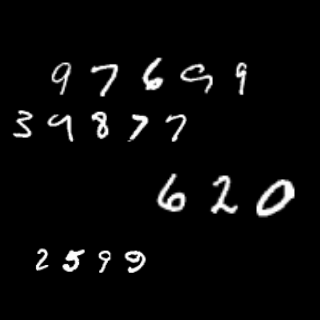 97699
39877
620
2599